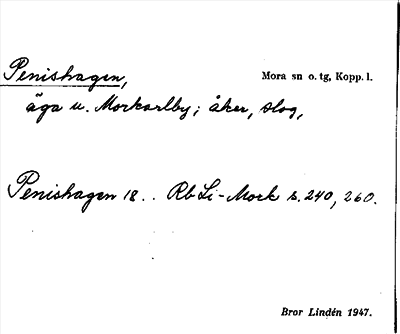 Penishagen, Mora sn o. tg, Kopp. l.
äga u. Morkarlby; åker, slog,
Penishagen 18 . . Rb Li - Mork s. 240, 260.
Bror Lindén 1947.